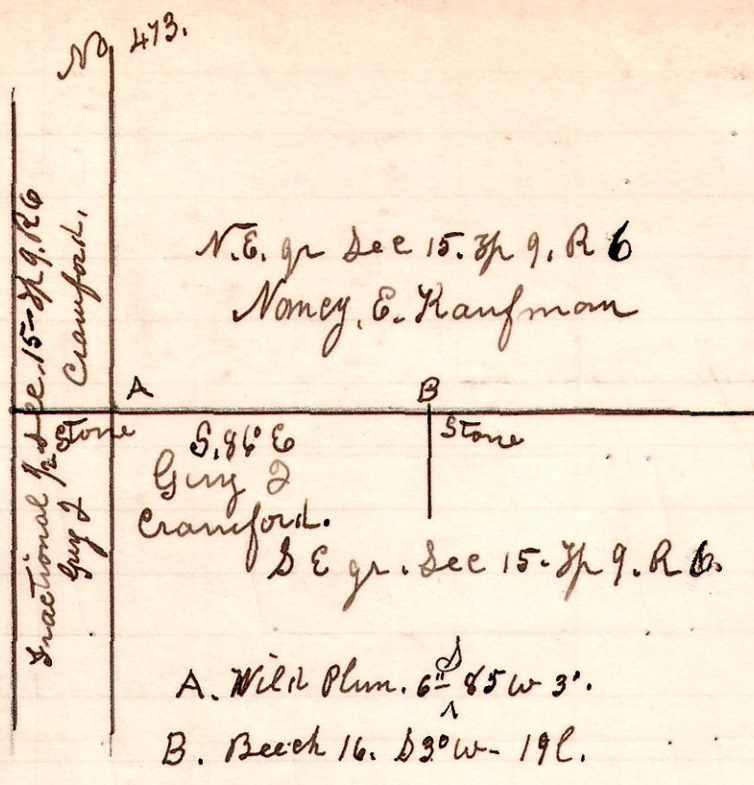 No 473.
Fractional 1/2 Sec. 15-Tp 9. R6
Guy J Crawford.
N.E. qr Sec 15. Tp 9. R 6
Nancy. E. Kaufman
A
B
Stone
Stone
S. 86° E
Guy J
Crawford.
S E qr. Sec 15- Tp 9. R 6.
A. Wild Plum. 6" S 85 W 3'.
B. Beech 16. S 3° W- 19 l.